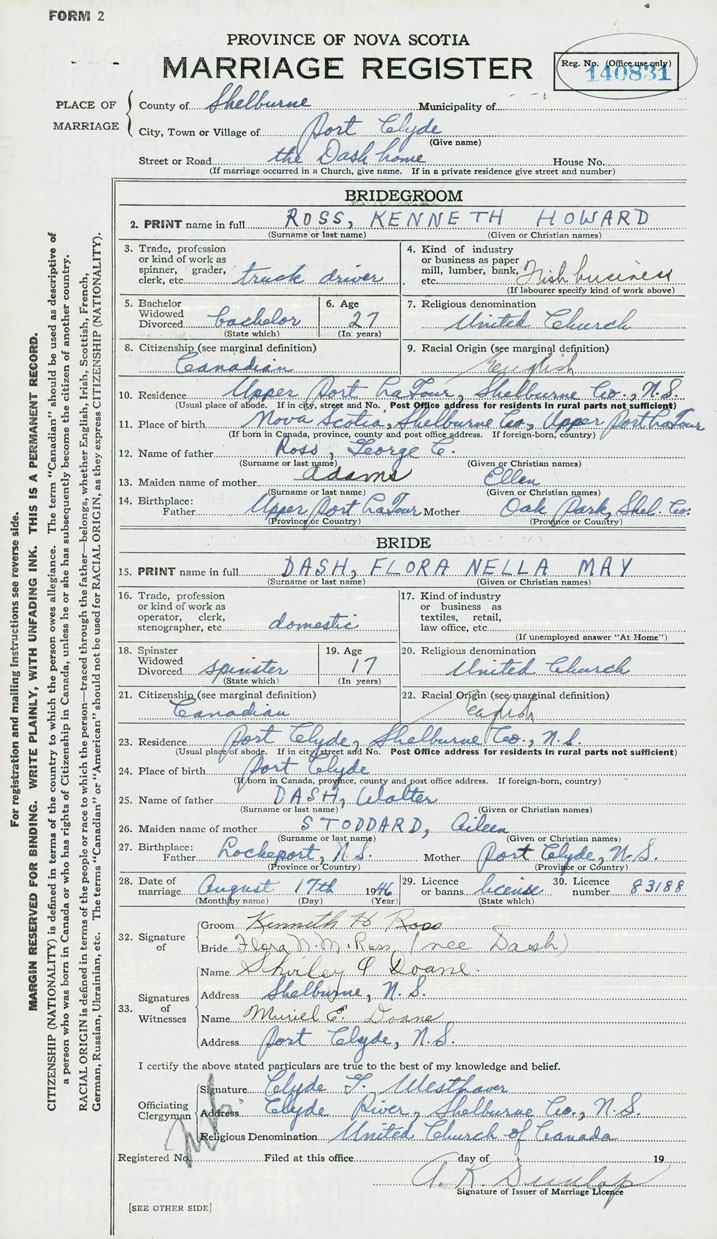 FORM 2
PROVINCE OF NOVA SCOTIA
MARRIAGE REGISTER
Reg. No. (Office use only)
140831
PLACE OF MARRIAGE
County of Shelburne Municipality of
City, Town or Village of Port Clyde
(Give name)
Street or Road the Dash home House No.
(If marriage occurred in a Church, give name. If in a private residence give street and number)
BRIDEGROOM
2. PRINT name in full ROSS, KENNETH HOWARD
(Surname or last name) (Given or Christian names)
3. Trade, profession or kind of work as spinner, grader, clerk, etc. truck driver
4. Kind of industry or business as paper mill, lumber, bank, etc. Fish business
(If labourer specify kind of work above)
5. Bachelor Widowed Divorced bachelor
(State which)
6. Age 27
(In years)
7. Religious denomination United Church
8. Citizenship (see marginal definition) Canadian
9. Racial Origin (see marginal definition) English
10. Residence Upper Port LaTour, Shelburne Co., N.S.
(Usual place of abode. If in city, street and No. Post Office address for residents in rural parts not sufficient)
11. Place of birth Nova Scotia, Shelburne Co., Upper Port LaTour
(If born in Canada, province, county and post office address. If foreign-born, country)
12. Name of father Ross, George C.
(Surname or last name) (Given or Christian names)
13. Maiden name of mother Adams Ellen
(Surname or last name) (Given or Christian names)
14. Birthplace: Father Upper Port LaTour Mother Oak Park, Shel. Co.
(Province or Country) (Province or Country)
BRIDE
15. PRINT name in full DASH, FLORA NELLA MAY
(Surname or last name) (Given or Christian names)
16. Trade, profession or kind of work as operator, clerk, stenographer, etc. domestic
17. Kind of industry or business as textiles, retail, law office, etc.
(If unemployed answer "At Home")
18. Spinster Widowed Divorced spinster
(State which)
19. Age 17
(In years)
20. Religious denomination United Church
21. Citizenship (see marginal definition) Canadian
22. Racial Origin (see marginal definition) English
23. Residence Port Clyde, Shelburne Co., N.S.
(Usual place of abode. If in city, street and No. Post Office address for residents in rural parts not sufficient)
24. Place of birth Port Clyde
(If born in Canada, province, county and post office address. If foreign-born, country)
25. Name of father DASH, Walter
(Surname or last name) (Given or Christian names)
26. Maiden name of mother STODDARD, Aileen
(Surname or last name) (Given or Christian names)
27. Birthplace: Father Lockeport, N.S. Mother Port Clyde, N.S.
(Province or Country) (Province or Country)
28. Date of marriage August 17th 1946
(Month by name) (Day) (Year)
29. Licence or banns license
(State which)
30. Licence number 83188
32. Signature of
Groom Kenneth H Ross
Bride Flora N. M. Ross (nee Dash)
33. Signatures of Witnesses
Name Shirley Doane
Address Shelburne, N.S.
Name Muriel E. Doane
Address Port Clyde, N.S.
I certify the above stated particulars are true to the best of my knowledge and belief.
Officiating Clergyman
Signature Clyde F. Westhaver
Address Clyde River, Shelburne Co., N.S.
Religious Denomination United Church of Canada
Registered No. Filed at this office day of 19
A. K. Dunlop
Signature of Issuer of Marriage Licence
[SEE OTHER SIDE]
For registration and mailing instructions see reverse side.
MARGIN RESERVED FOR BINDING. WRITE PLAINLY, WITH UNFADING INK. THIS IS A PERMANENT RECORD.
CITIZENSHIP (NATIONALITY) is defined in terms of the country to which the person owes allegiance. The term "Canadian" should be used as descriptive of
a person who was born in Canada or who has rights of Citizenship in Canada, unless he or she has subsequently become the citizen of another country.
RACIAL ORIGIN is defined in terms of the people or race to which the person—traced through the father—belongs, whether English, Irish, Scottish, French,
German, Russian, Ukrainian, etc. The terms "Canadian" or "American" should not be used for RACIAL ORIGIN, as they express CITIZENSHIP (NATIONALITY).